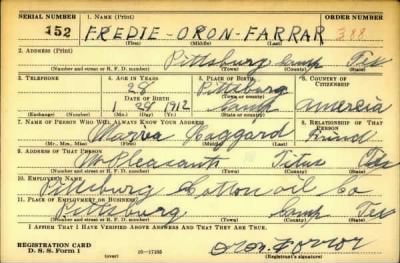 SERIAL NUMBER 1. NAME (Print) ORDER NUMBER
152 FREDIE-ORON-FARRAR 388
(First) (Middle) (Last)
2. ADDRESS (Print)
Pittsburg Camp Tex
(Number and street or R. F. D. number) (Town) (County) (State)
3. TELEPHONE 4. AGE IN YEARS 5. PLACE OF BIRTH 6. COUNTRY OF CITIZENSHIP
28 Pittsburg
DATE OF BIRTH (Town or county)
1 28 1912 Camp
(Exchange) (Number) (Mo.) (Day) (Yr.) (State or country)
7. NAME OF PERSON WHO WILL ALWAYS KNOW YOUR ADDRESS 8. RELATIONSHIP OF THAT PERSON
Haggard
(Mr., Mrs., Miss) (First) (Middle) (Last)
9. ADDRESS OF THAT PERSON
Mt Pleasant Titus Tex
(Number and street or R. F. D. number) (Town) (County) (State)
10. EMPLOYER'S NAME
Pittsburg Cotton oil Co
11. PLACE OF EMPLOYMENT OR BUSINESS
Pittsburg Camp Tex
(Number and street or R. F. D. number) (Town) (County) (State)
I AFFIRM THAT I HAVE VERIFIED ABOVE ANSWERS AND THAT THEY ARE TRUE.
REGISTRATION CARD
D. S. S. Form 1 (over) 16—17105 Oron Farror
(Registrant's signature)